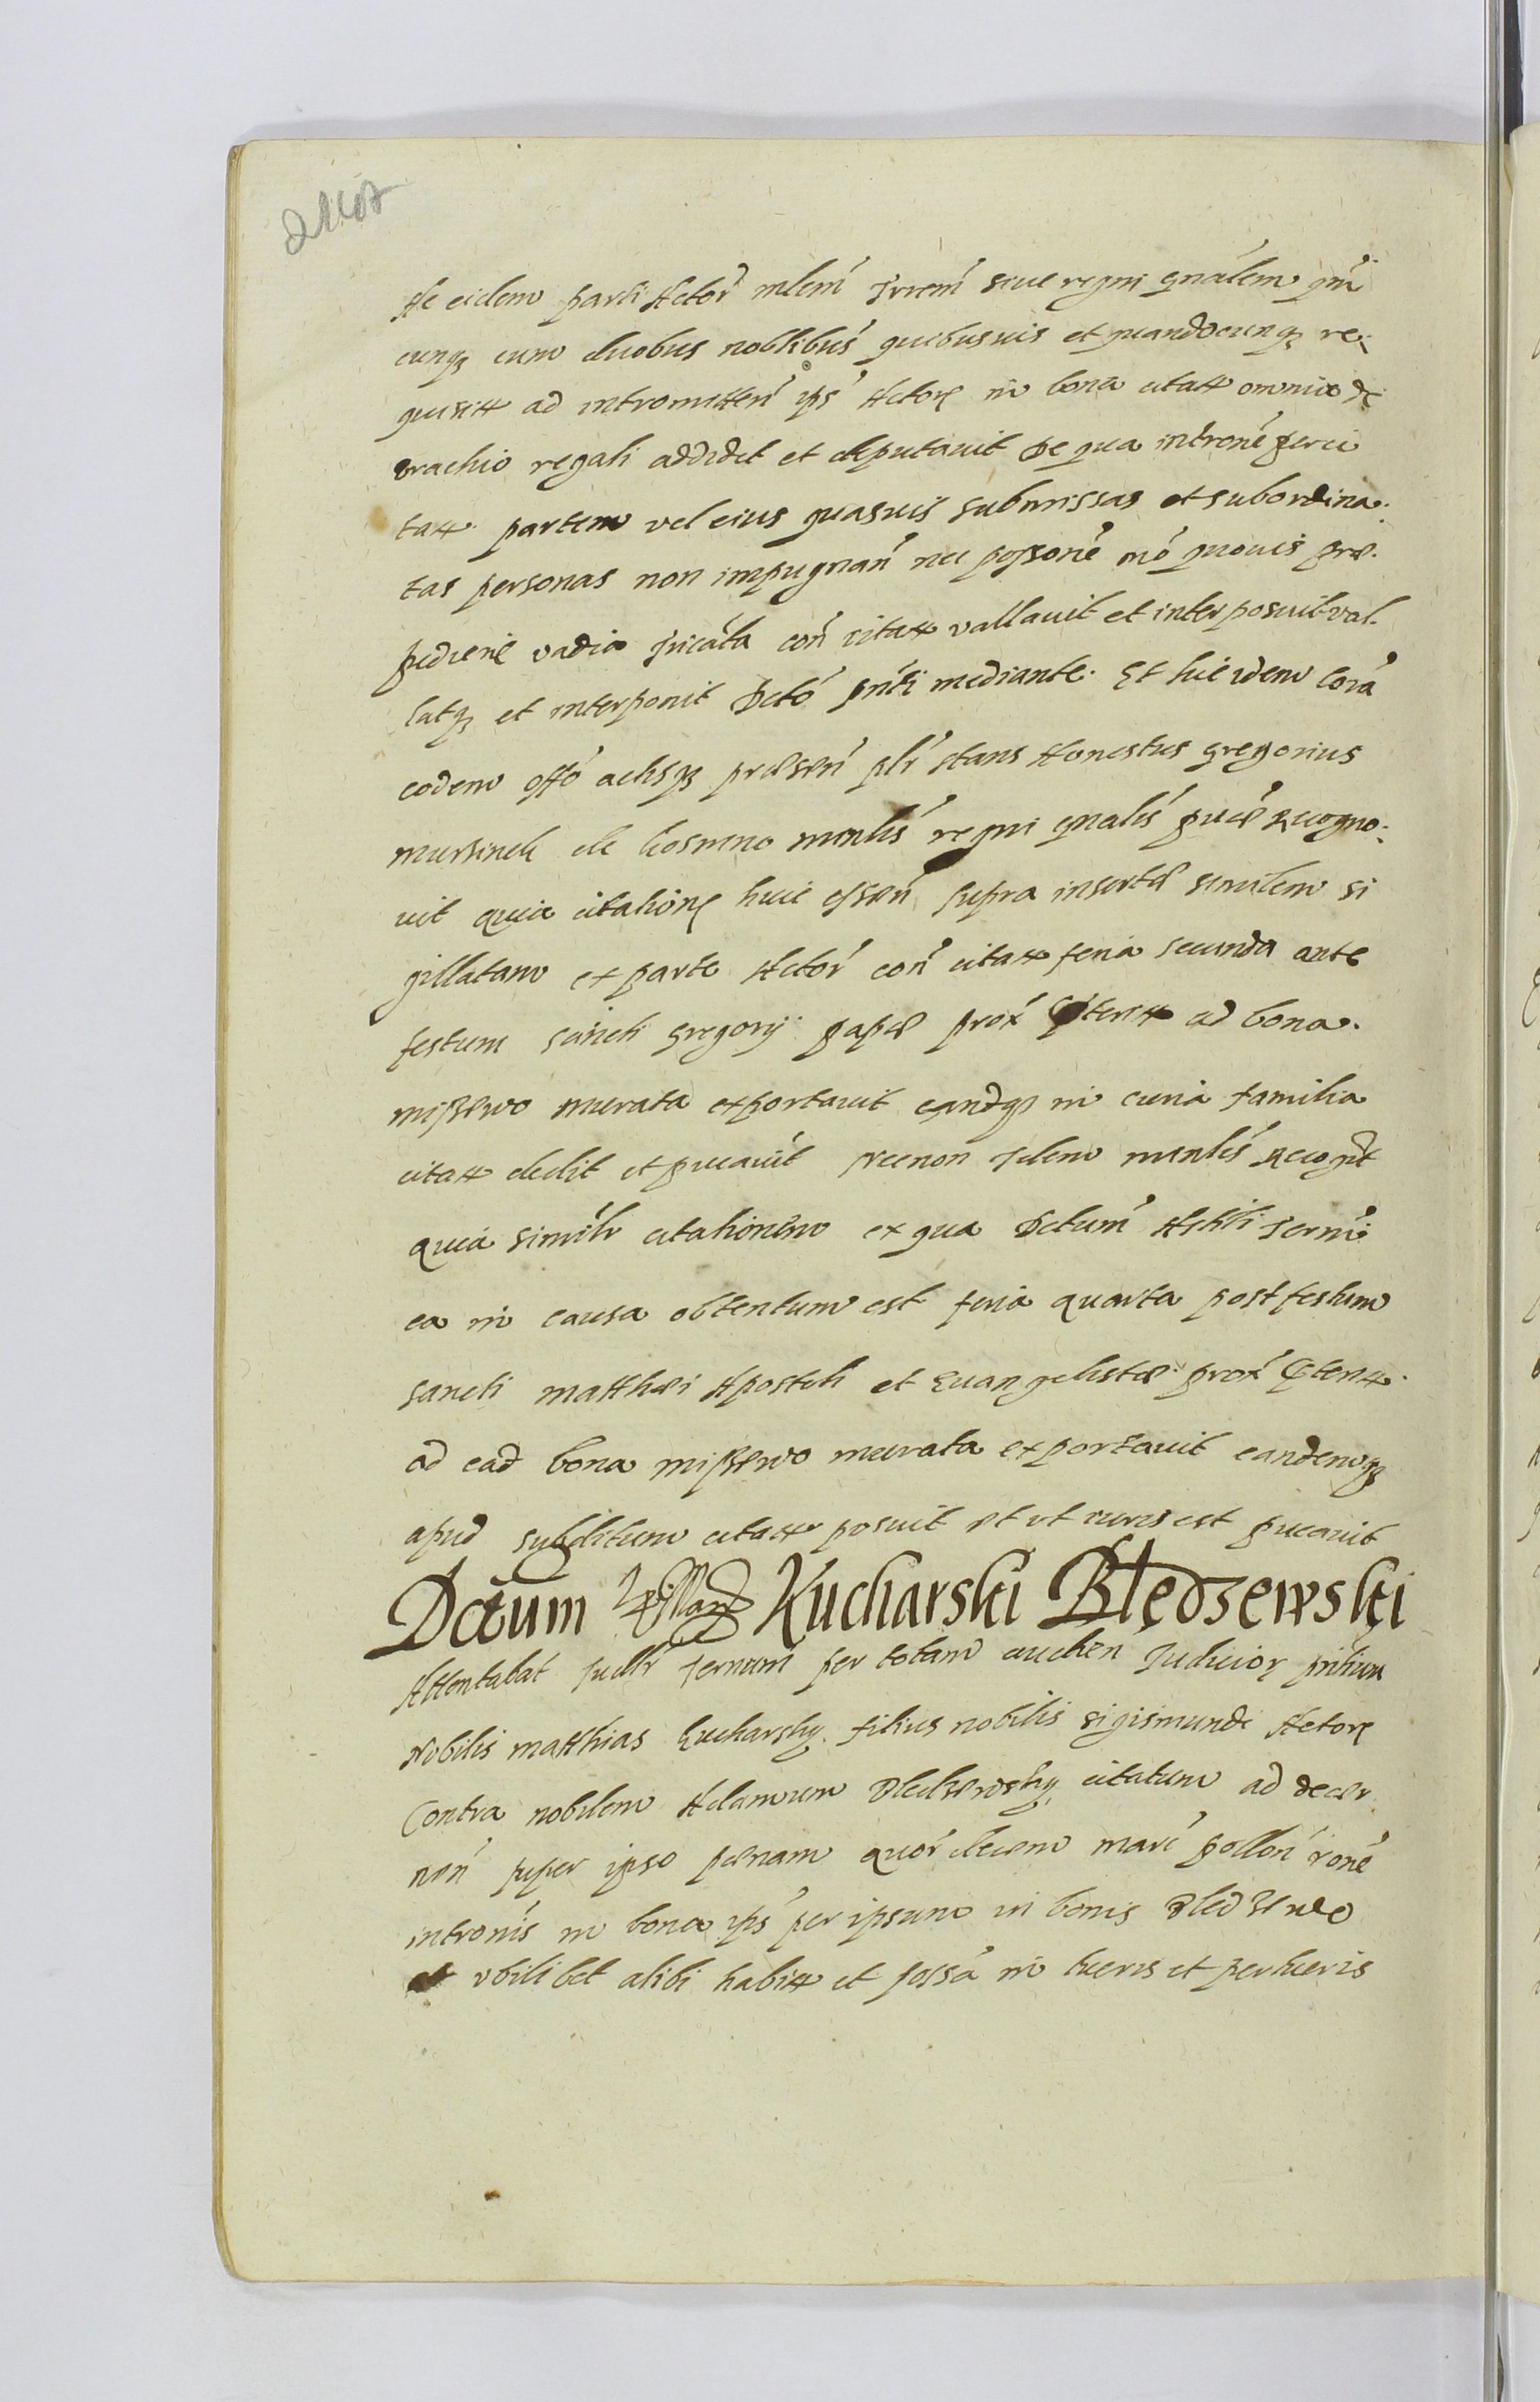 Ac eidem parti Actor mlem Jrrem siue regni gnalem qm
cunqz cum duobus noblibus quibusuis et quandocunqz re
quisitt ad intromitten ips Actore in bona citatt omnia de
brachio regali addidit et deputauit De qua introne per ci
tatt partem vel eius quasuis submissas et subordina
tas personas non impugnan nec possone mo quouis præ
pediene vadia Jricata con citatt vallauit et interposuit val
latqz et interponit Dcto pnti mediante. Et hic idem Cora
eodem offo actisqz præsen plr stans Honestus Gregorius
mursinek de kosmino mnlis regni gnalis puce Recogno
uit quia citatione huic essen supra insertæ similem si
gillatam ex parte Actor con citatt feria secunda ante
festum sancti Gregorij papæ prox Pterit ad bona
miszewo murata exportauit eandqz in curia familia
citatt dedit et pucauit Necnon Idem mnlis Recogt
quia similr citationem ex qua Dctum Attti Termi
ea in causa obtentum est feria quarta post festum
sancti matthæi Apostoli et Euangelistæ prox Pterit
ad ead bona miszewo murata exportauit eandemqz
apud subditum citatt posuit et vt iuris est pucauit
Dctum Kucharski Błędzewski
Attentabat Judtr Termum per totam audien Judicior pntium
Nobilis matthias kucharsky filius nobilis sigismundi Actore
Contra nobilem Adamum Bledzewsky citatum ad decer
nen super ipso pænam quor decem marc pollon rone
intronis in bona ips per ipsum in bonis Bledzewo
et vbilibet alibi habitt et possa in hæris et perhæris